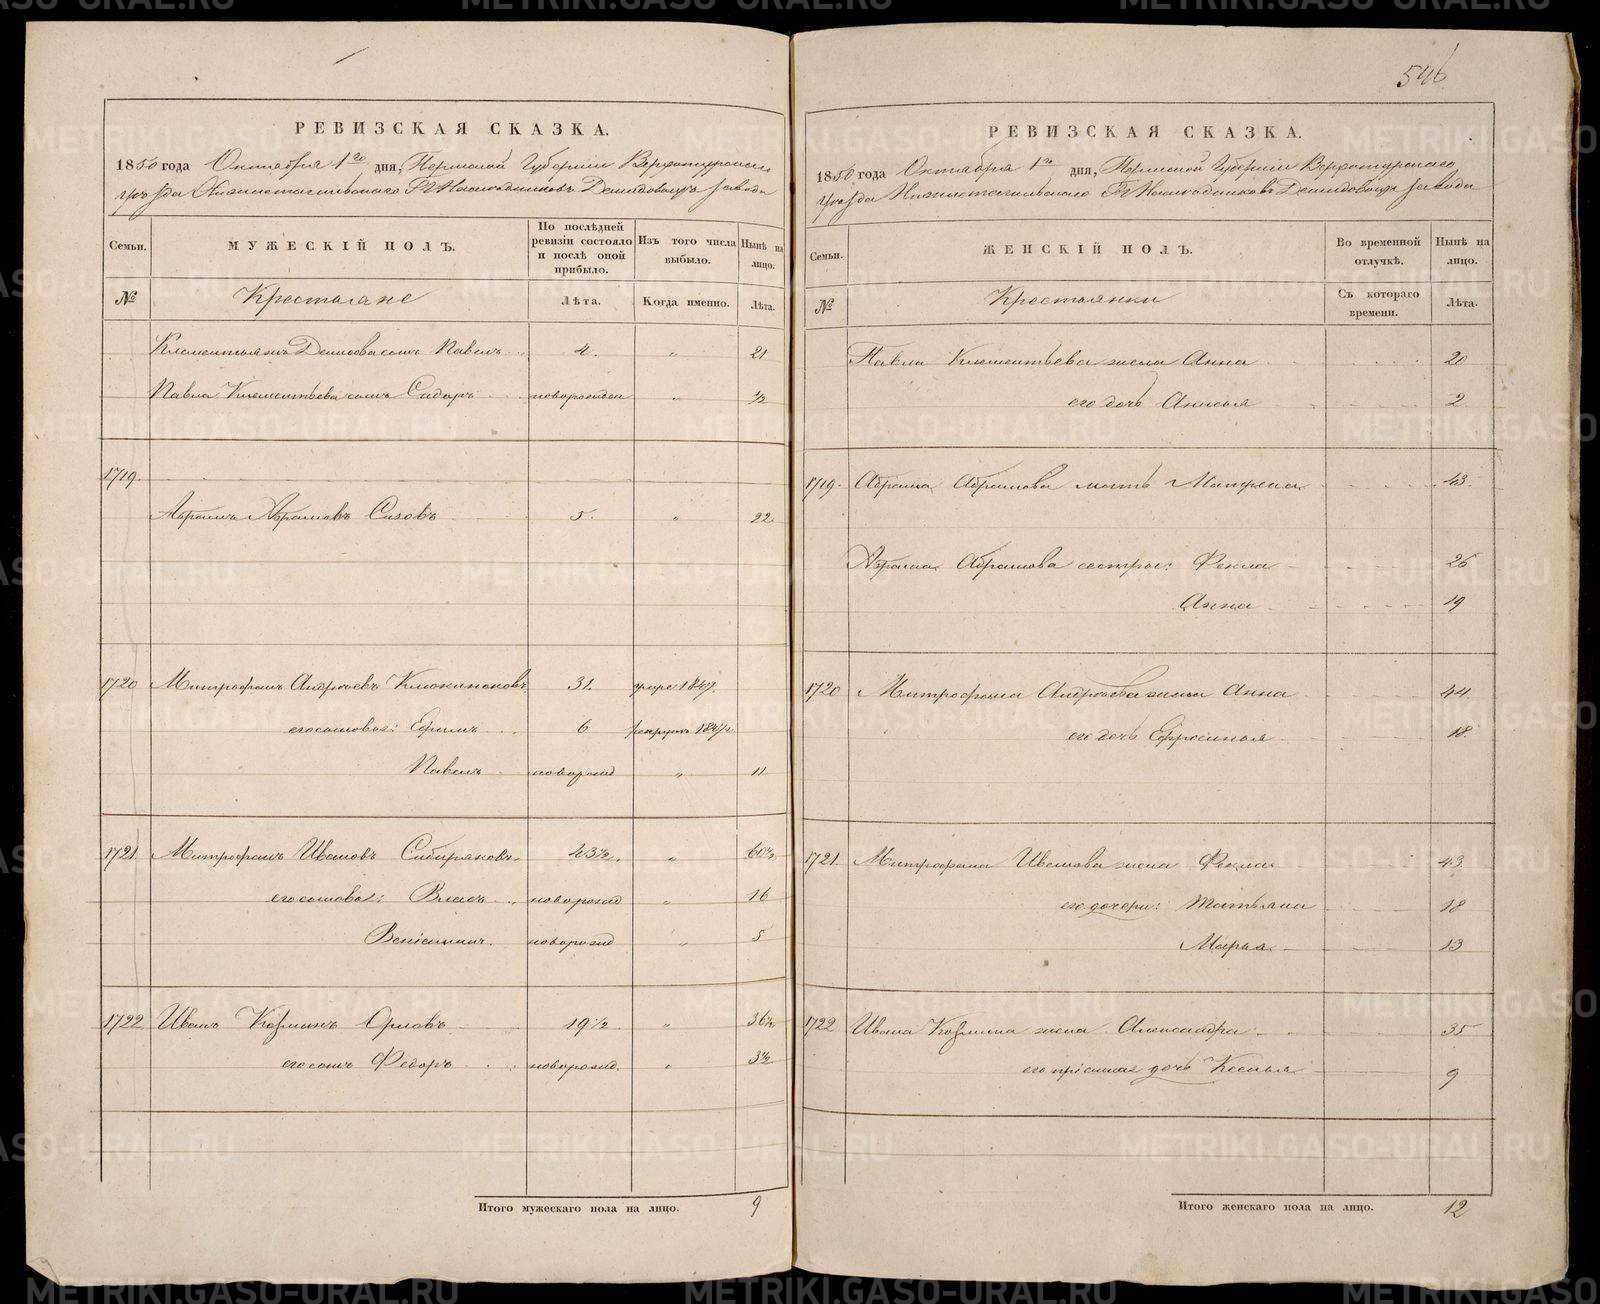 РЕВИЗСКАЯ СКАЗКА.
1850 года Октября 1го дня, Пермской Губернии Верхотурскаго
уѣзда Нижнетагильскаго Гг Наслѣдниковъ Демидовыхъ завода
Семьи.
МУЖЕСКІЙ ПОЛЪ.
По послѣдней ревизіи состояло и послѣ оной прибыло.
Изъ того числа выбыло.
Нынѣ на лицо.
№ Крестьяне Лѣта. Когда именно. Лѣта.
Клементьянъ Денисова сынъ Павелъ 4. " 21
Павла Клементьева сынъ Сидоръ новорожден " ½
1719.
Абрамъ Абрамовъ Сизовъ 5. " 22
1720 Митрофанъ Андреевъ 31. умре 1847.
его сыновья: Ефимъ 6 рекрут
Павелъ новорожд " 11
1721 Митрофанъ Ивановъ Сибиряковъ 43½. " 60½
его сыновья: Власъ новорожд " 16
Веніаминъ. новорожд " 5
1722 Иванъ Козминъ Орловъ 19½ " 36½
его сынъ Федоръ новорожд. " 3½
Итого мужескаго пола на лицо. 9
546
РЕВИЗСКАЯ СКАЗКА.
1850 года Октября 1го дня, Пермской Губерніи Верхотурскаго
уѣзда Нижнетагильскаго Гг Наслѣдниковъ Демидовыхъ завода
Семьи.
ЖЕНСКІЙ ПОЛЪ.
Во временной отлучкѣ.
Нынѣ на лицо.
№ Крестьянки Съ котораго времени. Лѣта.
Павла Клементьева жена Анна 20
его дочь Анисья 2
1719. Абрама Абрамова мать Матрена 43.
Абрама Абрамова сестры: Фекла 26
Анна 19
1720 Митрофана Андреева жена Анна 44.
его дочь Ефросинья 18.
1721. Митрофана Иванова жена Фекла 43.
его дочери: Татьяна 18
Марья 13
1722 Ивана Козмина жена Александра 35
его пріемная дочь Ксенья 9
Итого женскаго пола на лицо. 12
METRIKI.GASO-URAL.RU